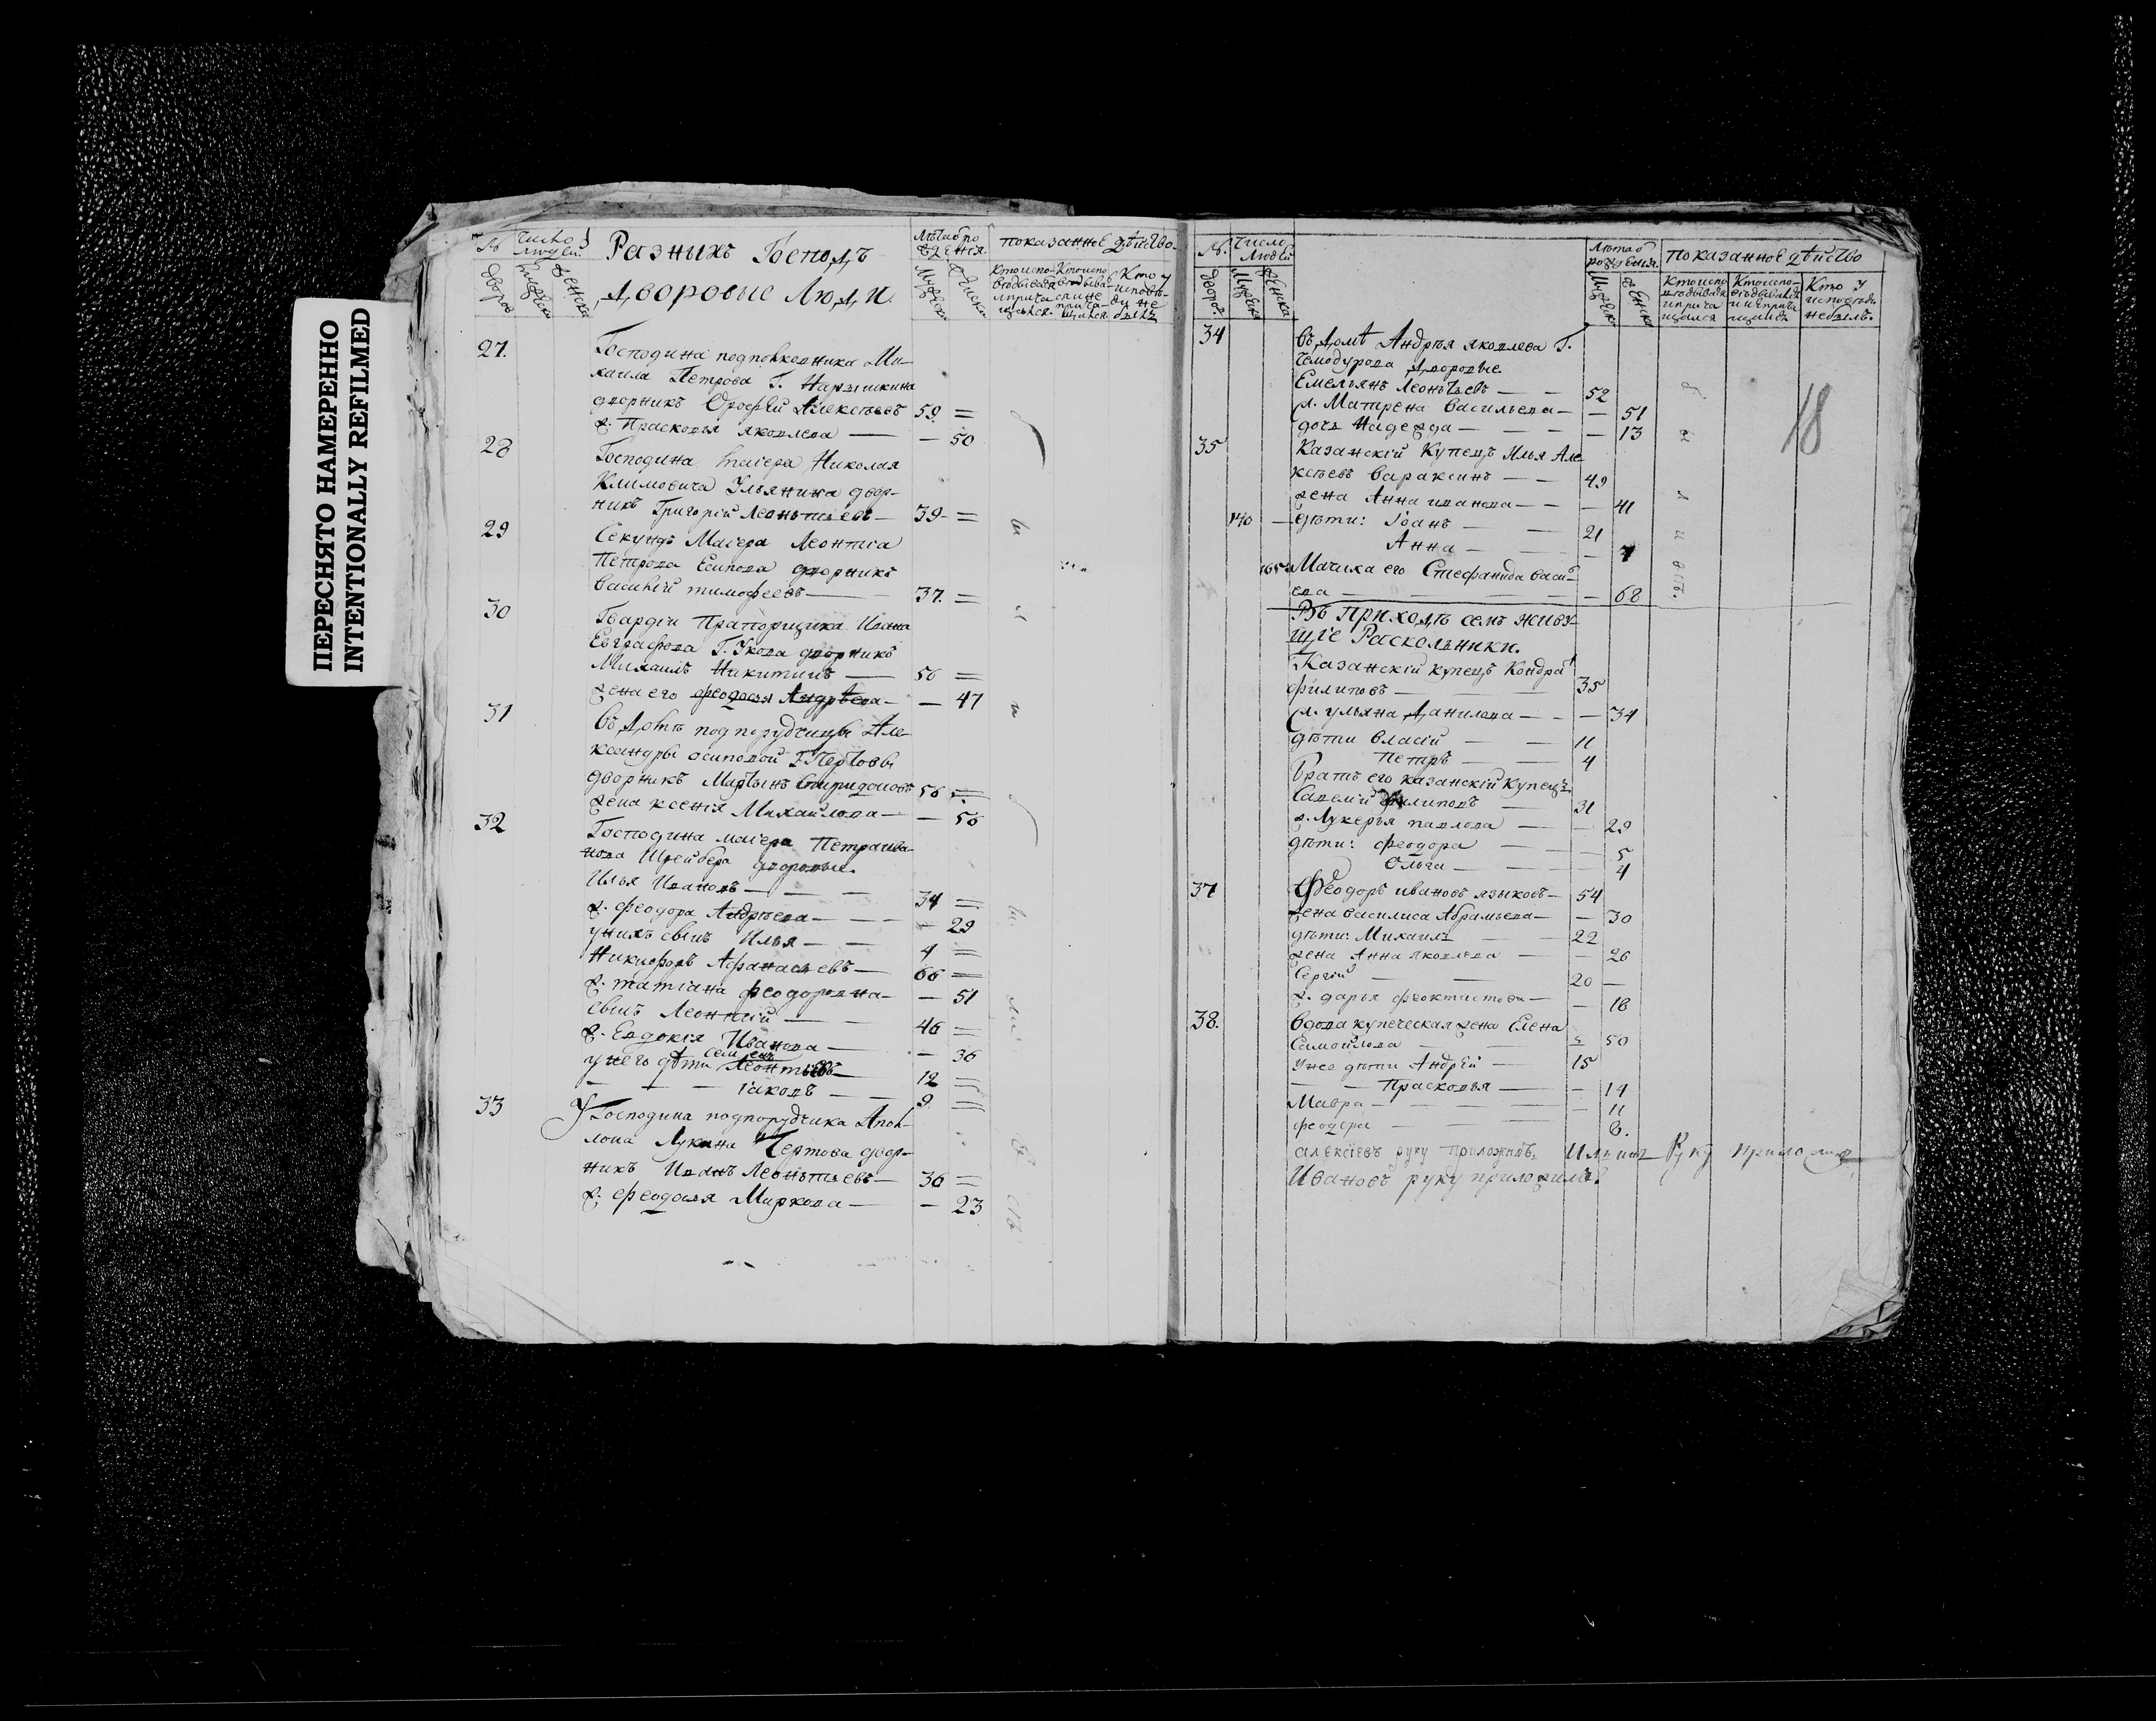 ПЕРЕСНЯТО НАМЕРЕННО
INTENTIONALLY REFILMED
№ число людей
Разныхъ Господъ
дворовые Люди.
лѣта о рожденія
показанное дѣйство.
дворов мужеска женска
мужеска женска
27.
Господина подполковника Ми-
хаила Петрова Г. Нарышкина
дворникъ Алексѣевъ 59 =
ж. Прасковья яковлева — — 50
28
Господина маіера Николая
Климовича Ульянина двор-
никъ Григорій Леонтьевъ — 39 =
29
Секундъ Маіера Леонтіа
Петрова Есипова дворникъ
Василій тимофеевъ — 37. =
30
Гвардіи Прапорщика Ивана
Евграфова Г. дворникъ
Михаилъ Никитинъ — 56 =
жена его феодосья Андрѣева — — 47
31
въ домѣ подпорудчицы Але-
ксандры осиповой Г. Чертовы
дворникъ Мартынъ Спиридоновъ 56 =
жена ксенія Михайлова — — 56
32
Господина маіера Петра Ива-
нова дворовые.
Илья Ивановъ — 34 =
ж. феодора Андрѣева — — 29
у нихъ сынъ Илья — 4 =
Никифоръ Афанасьевъ — 66 =
ж. татіана феодоровна — — 51
сынъ Леонтій — 46 =
ж. Евдокія Иванова — — 36
у него дѣти 12 =
— іаковъ — 9 =
33
У Господина подпорудчика Апол-
лона Лукина Чертова двор-
никъ Иванъ Леонтьевъ — 36 =
ж. феодосья Маркова — — 23
№. Число Людей
лѣта о рожденія.
показанное дѣйство
дворов мужеска женска
мужеска женска
Кто у
исповѣди
не былъ.
18
34
въ домѣ Андрея яковлева Г.
Чемодурова дворовые
Емельянъ Леонтьевъ — — 52
ж. Матрена васильева — — 51
дочь Надежда — — 13
35
Казанскій Купецъ Илья Але
ксѣевъ вараксинъ — — 49
жена Анна иванова — — — 41
140 — дѣти: Іоанъ — 21
Анна — — 7
165 Мачиха его Стефанида васи-
ева — — 68
Въ Приходѣ семъ живу-
щіе Раскольники.
Казанскій купецъ Кондра
филиповъ — 35
ж. ульяна Данилова — — — 34
дѣти власій — — 11
Петръ — — 4
Братъ его казанскій купецъ
Савелій филиповъ — 31
ж. Лукерья павлова — — 29
дѣти: феодора — — 5
Ольга — — 4
37
Феодоръ ивановъ языковъ — 54
жена василиса Абрамьева — — 30
дѣти: Михаилъ — — 22
жена Анна яковлева — — 26
Сергій — 20 —
ж. дарья феоктистова — — 18
38.
вдова купеческая жена Елена
Самойлова — 50
у нее дѣти Андрей — 15
— — Прасковья — — 14
Мавра — — — 11
феодора — — 8.
алексіевъ руку приложилъ. руку приложилъ
Ивановъ руку приложилъ